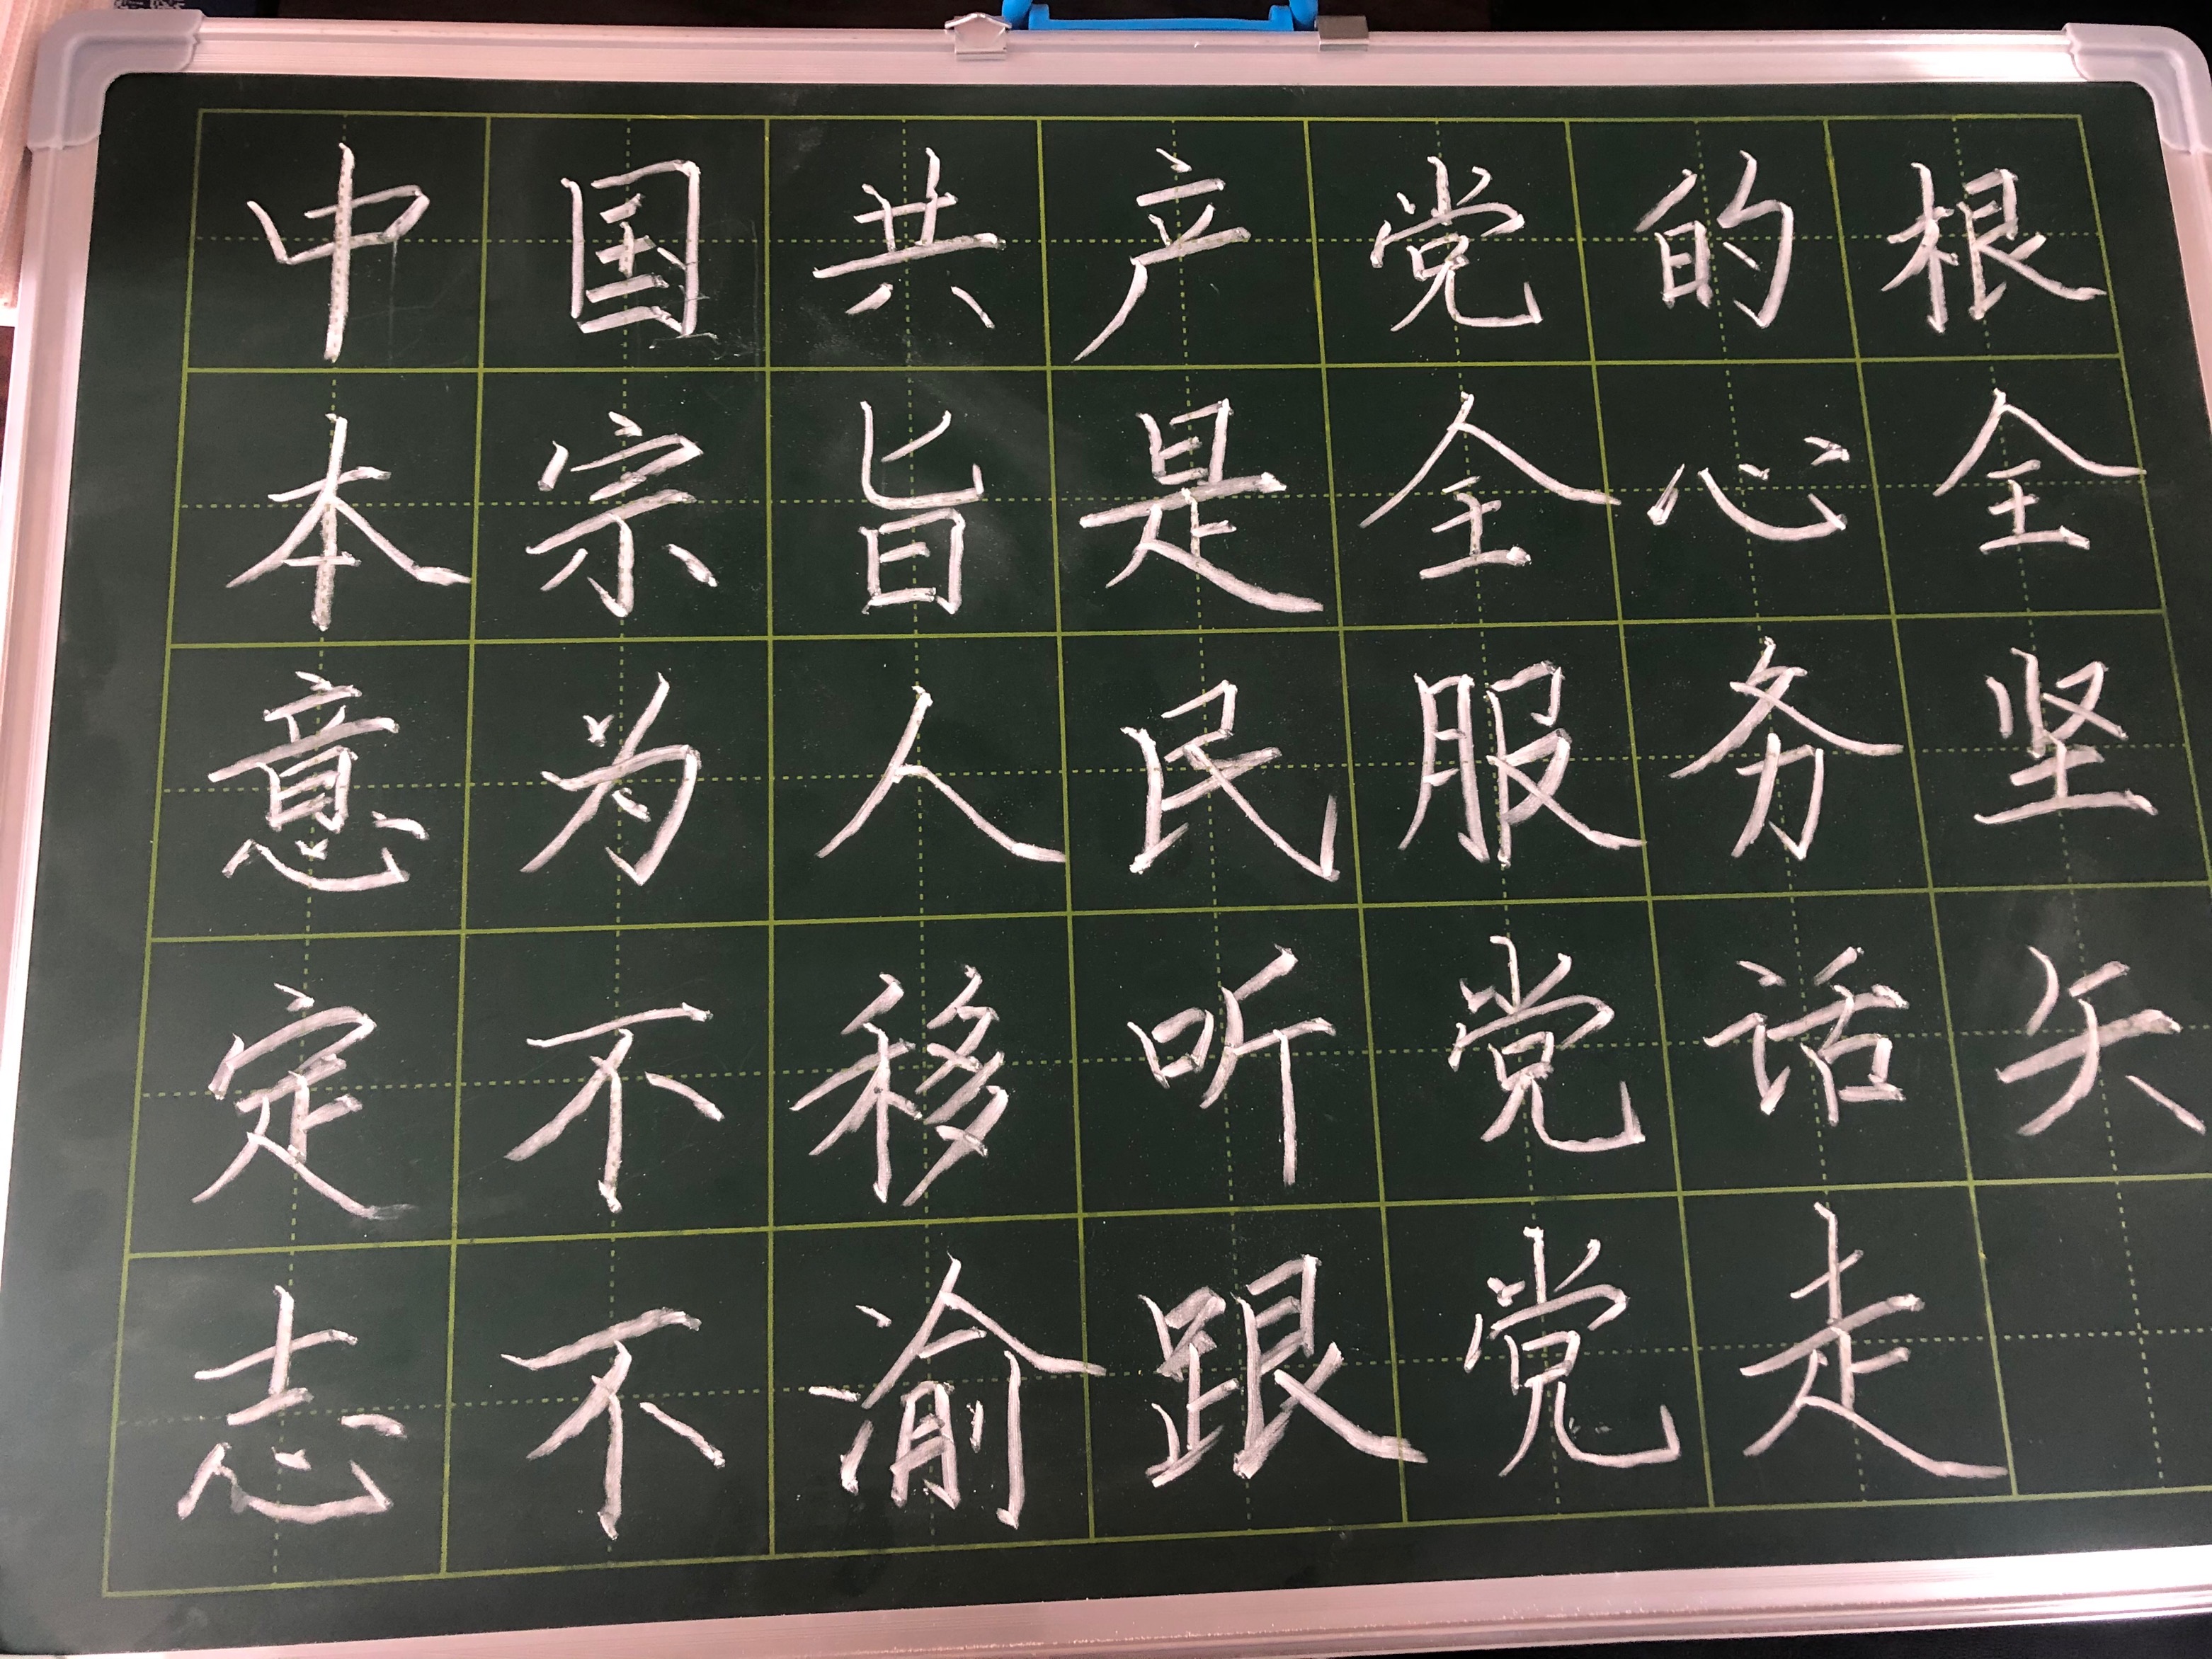 中国共产党的根
本宗旨是全心全
意为人民服务坚
定不移听党话矢
志不渝跟党走